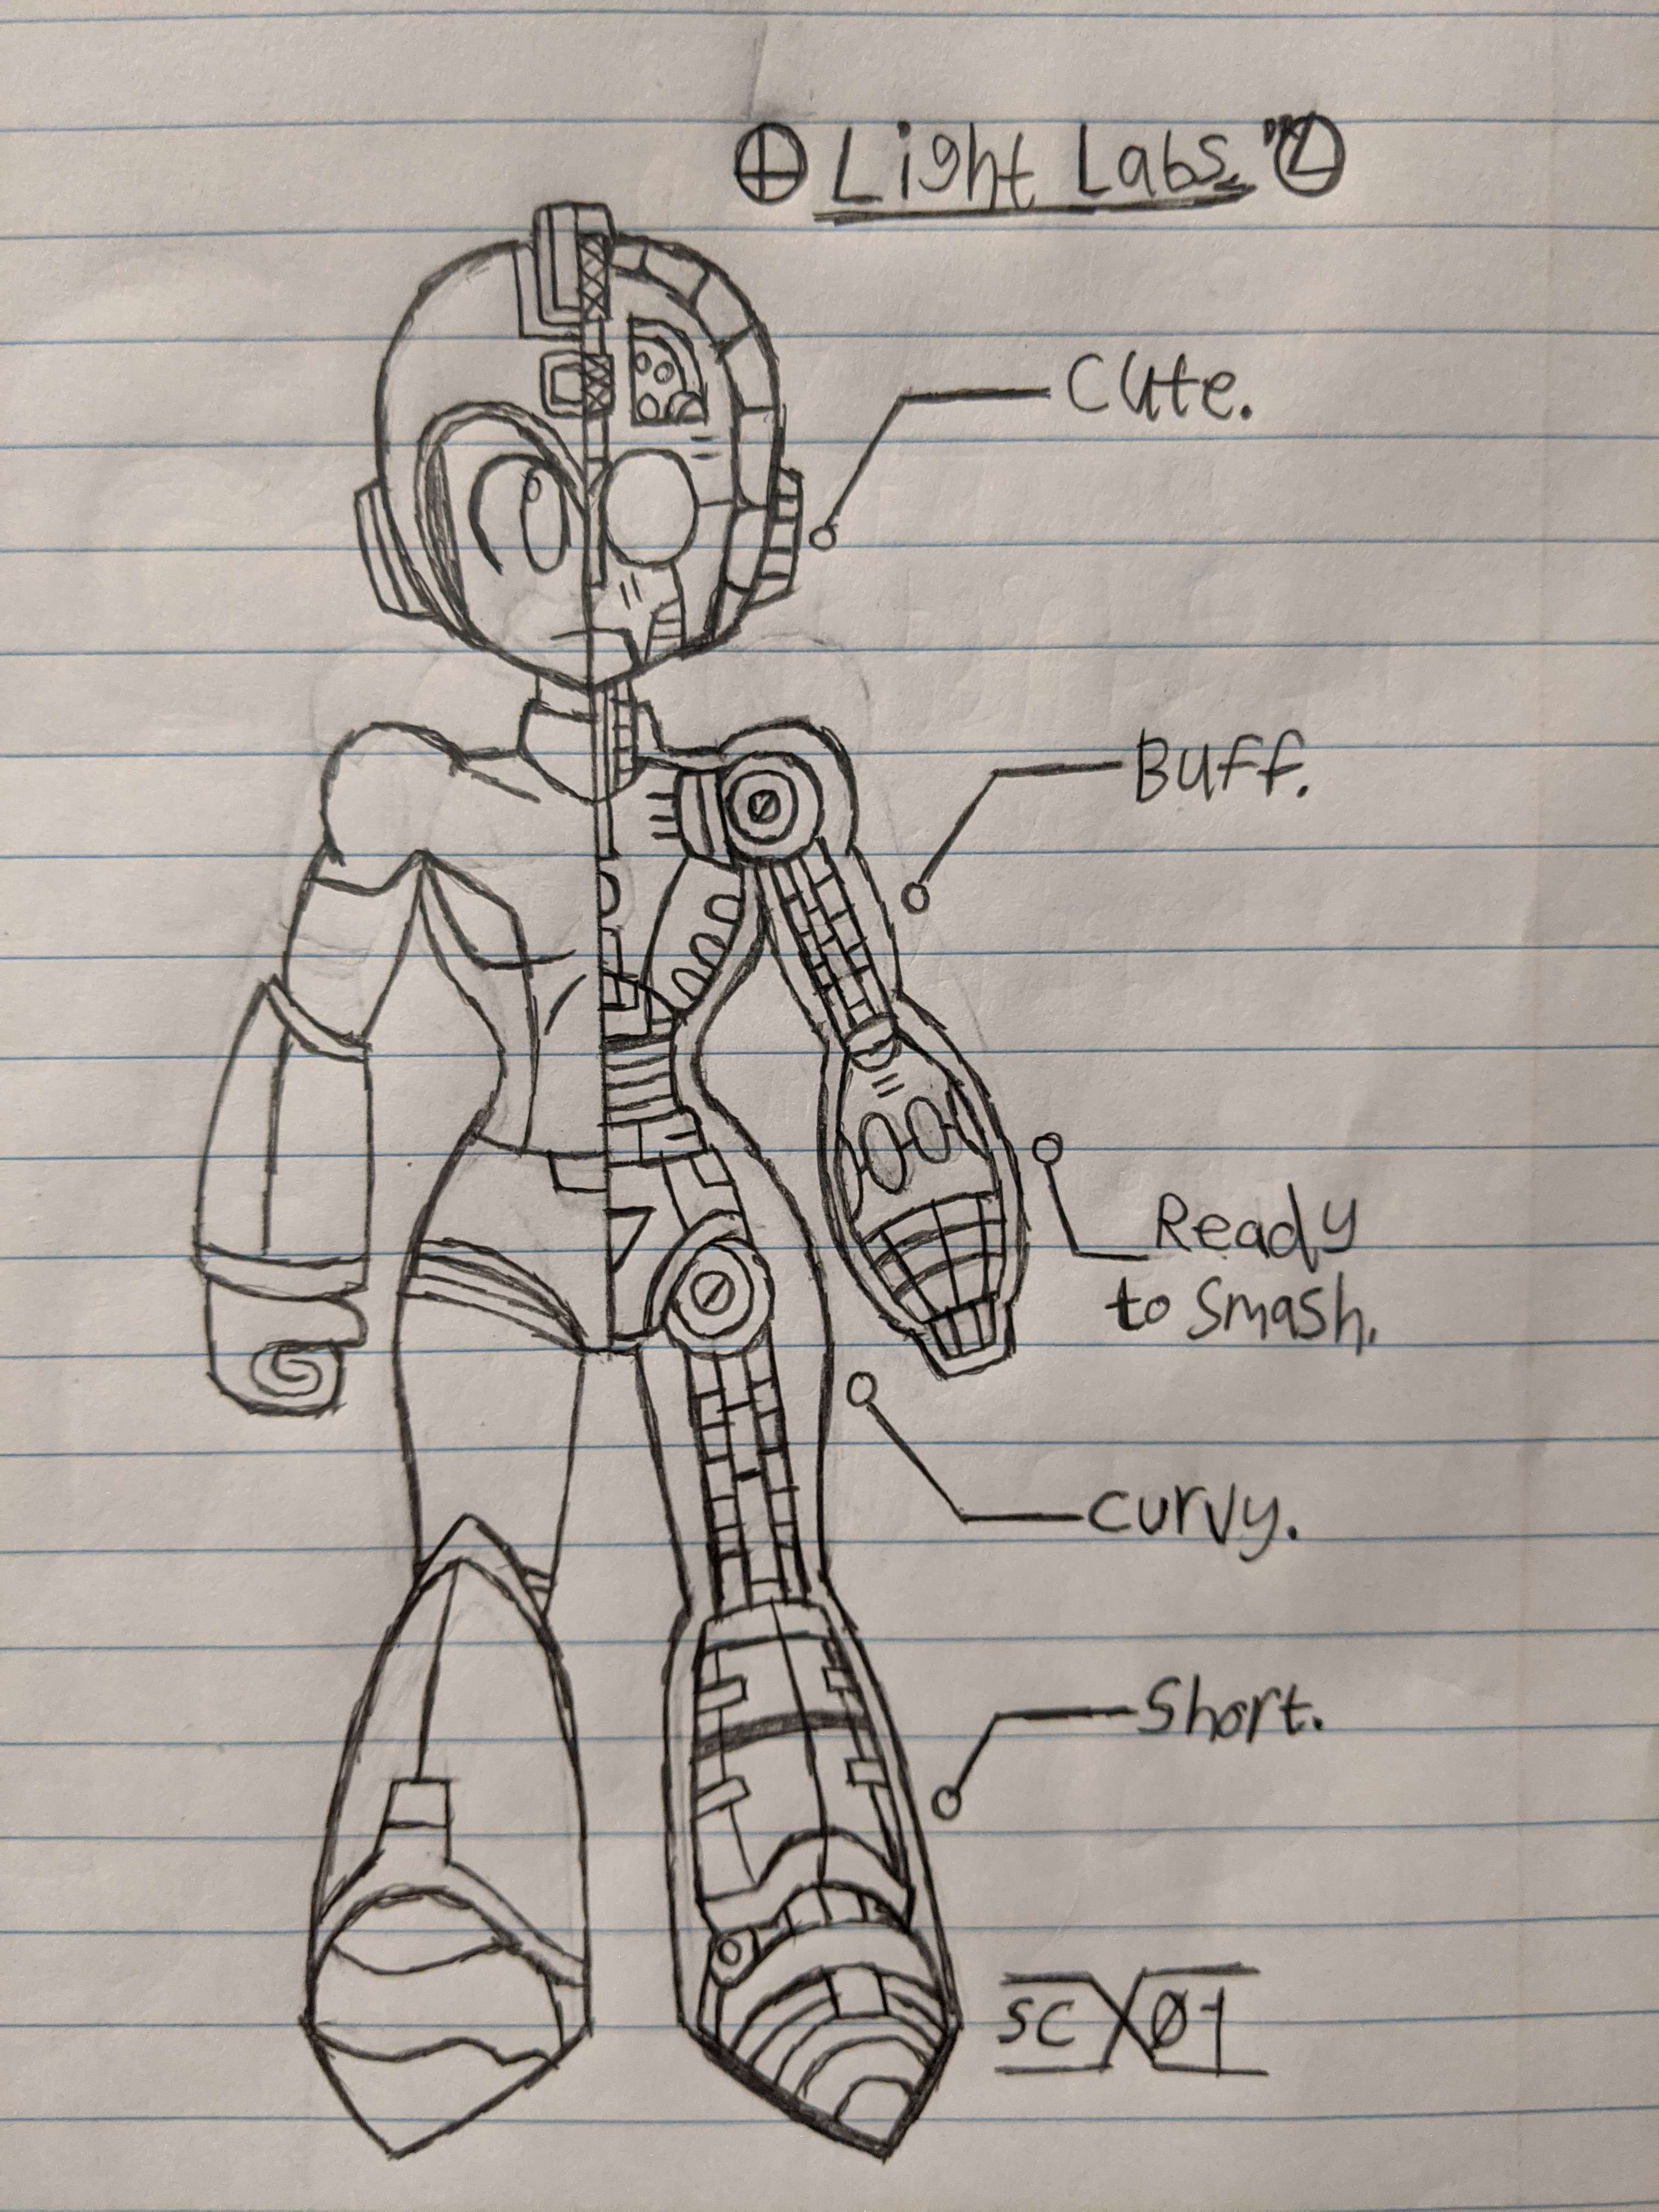 Light Labs.
Cute.
Buff.
Ready
to Smash.
Curvy.
Short.
SCX01